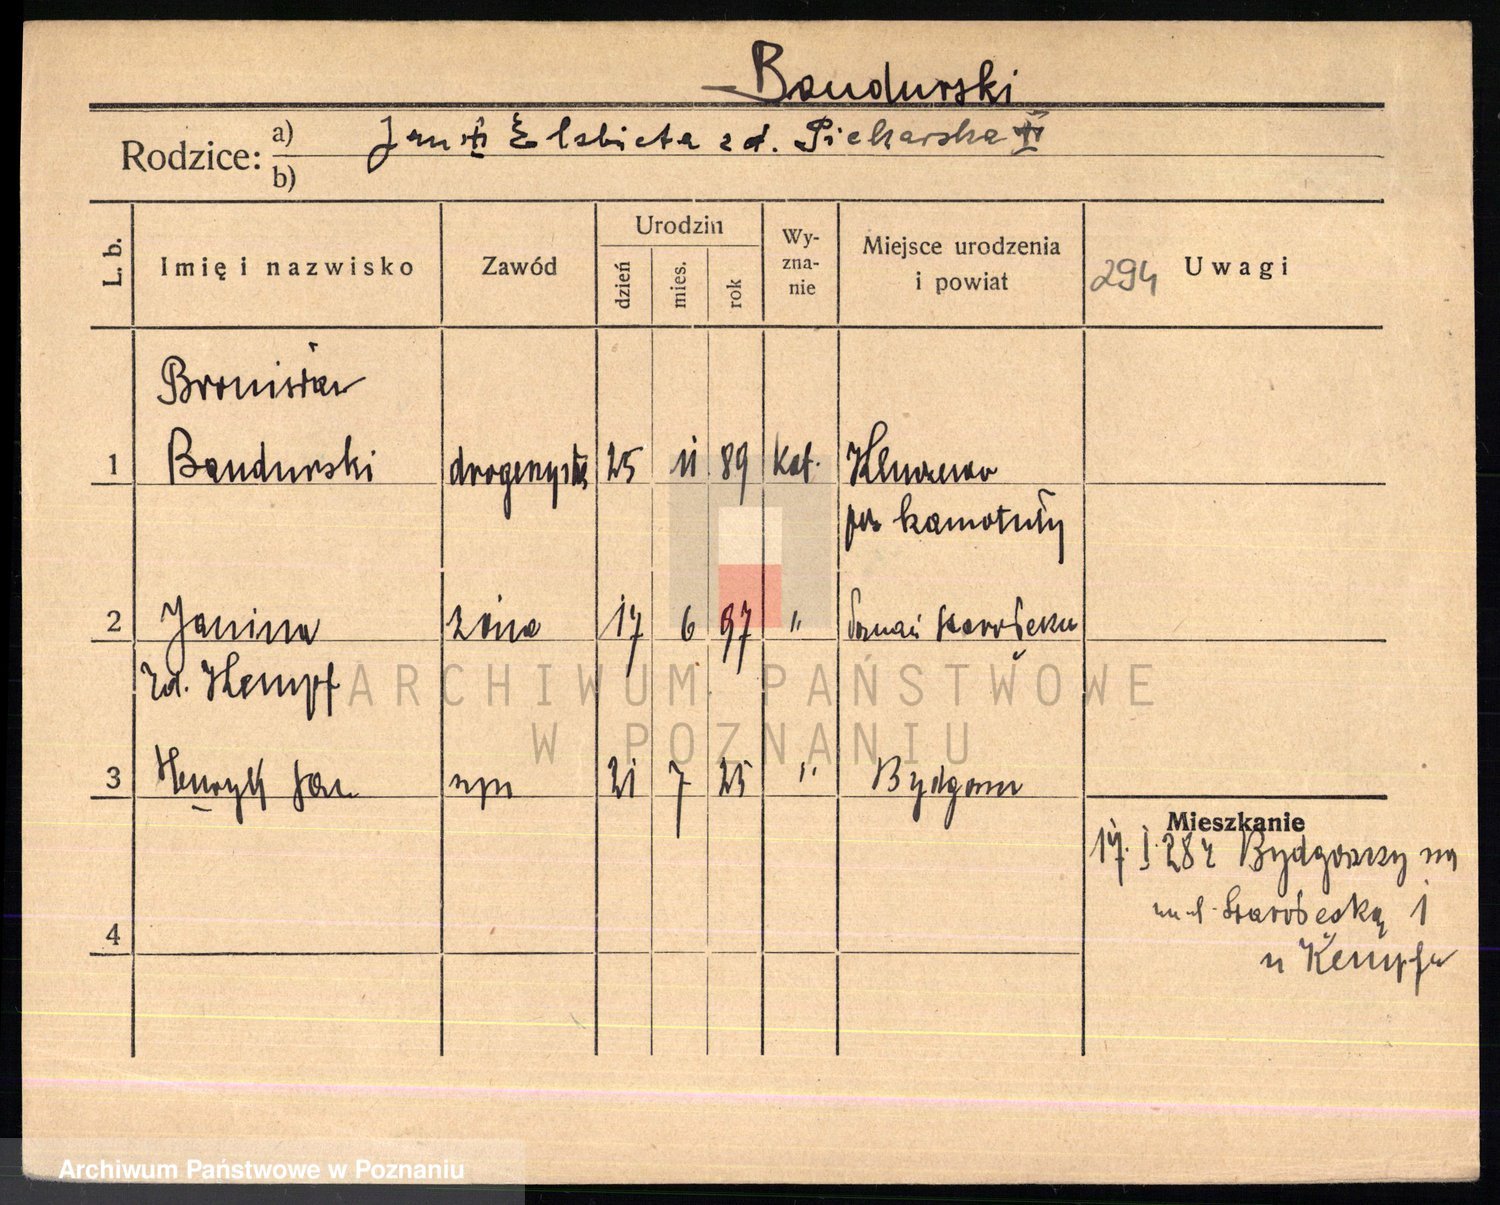 Bandurski
Rodzice: a) Jan Elżbieta zd. Piekarska
b)
L. b. Imię i nazwisko Zawód Urodzin dzień mies. rok Wyznanie Miejsce urodzenia i powiat 294 Uwagi
Bronisław
1 Bandurski drogerzysta 25 11 89 kat.
2 Janina żona 17 6 97 "
zd. Kempf
3 Henryk Jan syn 21 7 25 "
4
Mieszkanie
17. I. 28 z Bydgoszczy na
1
u Kempfa
ARCHIWUM PAŃSTWOWE
W POZNANIU
Archiwum Państwowe w Poznaniu